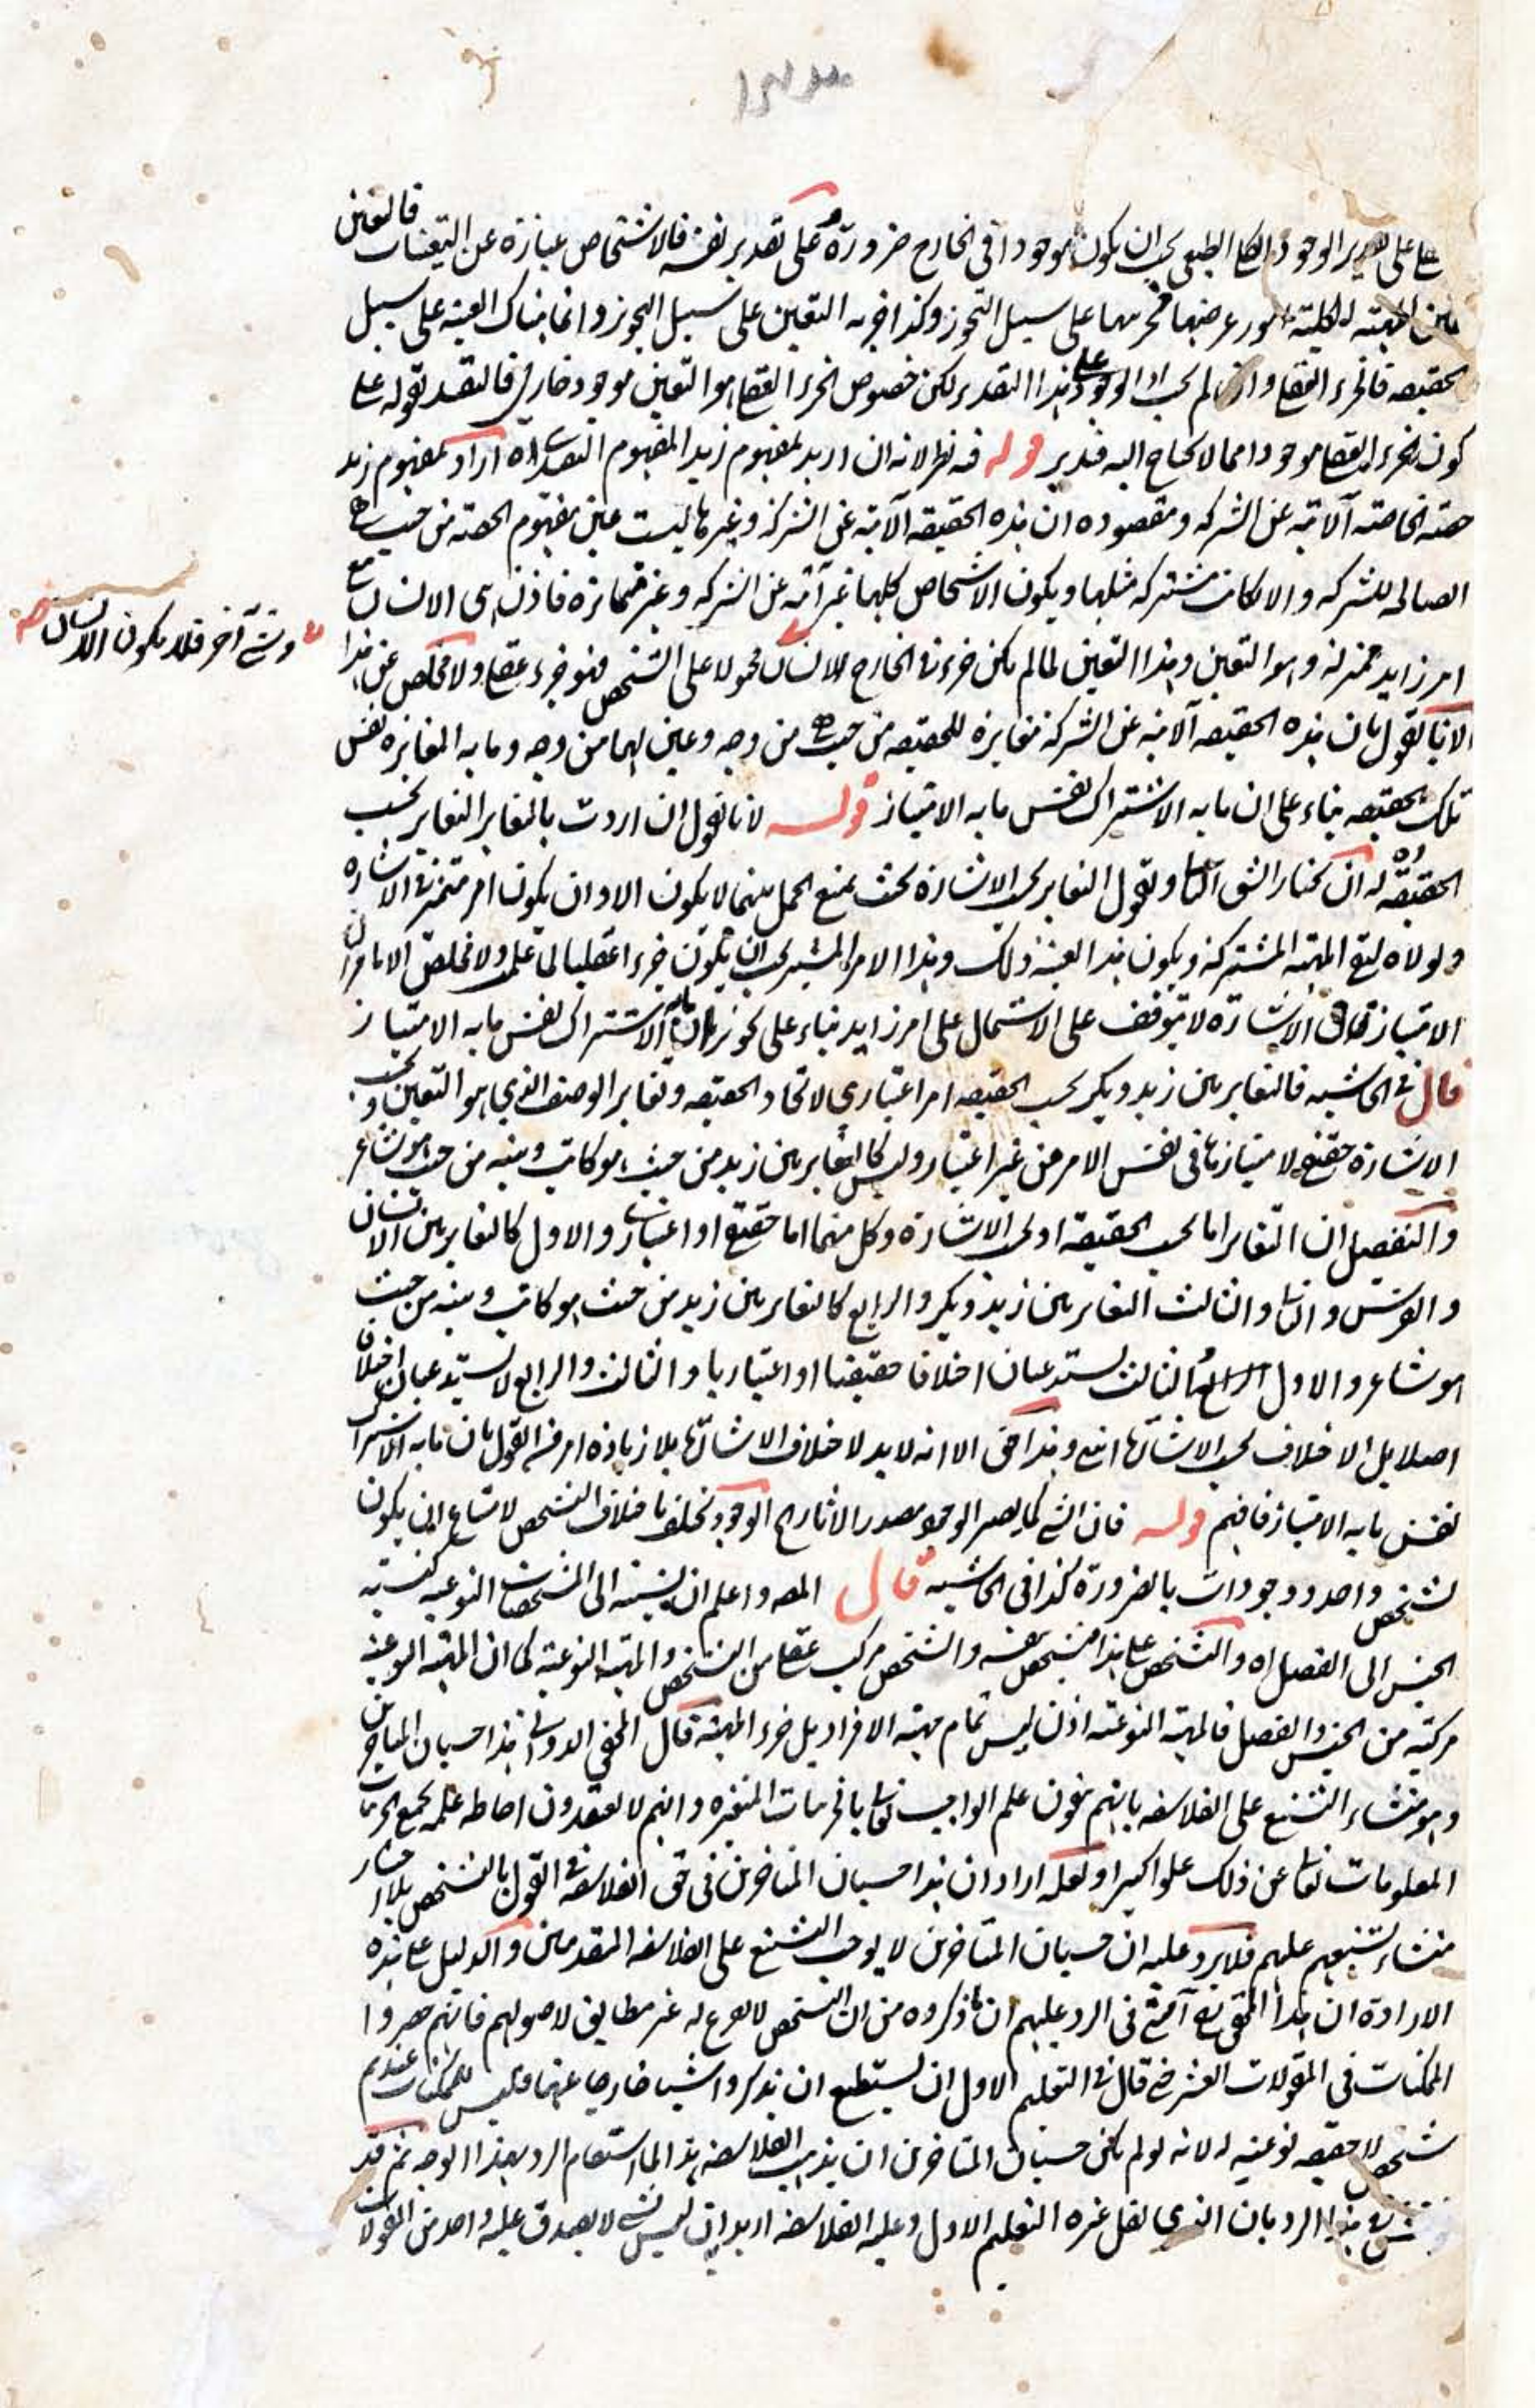 على تقدير الوجود الكلي الطبعي يجب ان يكون موجودا في الخارج ضرورة وعلى تقدير نفيه فالاشخاص عبارة عن التعينات فالتعين
الكلية امور عرضها على سبيل التجوز وكذا جزء التعين على سبيل التجوز وانما هناك العينية على سبيل
الحقيقه فالجزء العقلي وان لم يجب الوجود على هذا التقدير لكن خصوص الجزء العقلي هو التعين موجود خارجي فالتقييد بقوله على
كون الجزء العقلي موجودا مما لا يحتاج اليه فتدبر قوله فيه نظر لانه ان اريد بمفهوم زيد المفهوم التفصيلي اه اراد بمفهوم زيد
حصته الخاصته الآبية عن الشركه ومقصوده ان هذه الحقيقه الآبية عن الشركة وغيرها ليست عين مفهوم الحصته من حيث هي
الصالحه للشركه والا لكانت مشتركه مثلها ويكون الاشخاص كلها غير آبية عن الشركه وغير متمايزه فاذن هي الانسان مع
امر زايد تميز به وهو التعين وهذا التعين لما لم يكن جزءه في الخارج للانسان محمولا على الشخص فهو جزء عقلي ولا مخلص عن هذا
وشئ آخر فلا يكون الانسان صح
الا بان نقول بان هذه الحقيقه الآبية عن الشركة مغايرة للحقيقه من حيث هي من وجه وعين لها من وجه وما به المغايره نفس
تلك الحقيقه بناء على ان ما به الاشتراك نفس ما به الامتياز قوله لانا نقول ان اردت بالتغاير التغاير بحسب
الحقيقة اه له ان يختار الشق الثاني ونقول التغاير بحسب الاشارة بحيث يمنع الحمل بينهما لا يكون الا وان يكون امر متميز في الاشاره
ولولاه لبقي المهية المشتركه ويكون هذا بعينه ذلك وهذا الامر المميز يجب ان يكون جزءا عقليا لما علمت ولا مخلص الا بان
الامتياز في الاشارة لا يتوقف على الاشتمال على امر زايد بناء على تجويز ان ما به الاشتراك نفس ما به الامتياز
قال في الحاشيه فالتغاير بين زيد وبكر بحسب الحقيقه امر اعتباري لاتحاد الحقيقه وتغاير الوصف الذي هو التعين وبحسب
الاشارة حقيقي لامتيازها في نفس الامر من غير اعتبار وليس كالتغاير بين زيد من حيث هو كاتب وبينه من حيث هو شاعر
والتفصيل ان التغاير اما بحسب الحقيقة او بحسب الاشارة وكل منهما اما حقيقي او اعتباري والاول كالتغاير بين الانسان
والفرس والثاني والثالث التغاير بين زيد وبكر والرابع كالتغاير بين زيد من حيث هو كاتب وبينه من حيث
هو شاعر والاول والثالث يستدعيان اختلافا حقيقيا او اعتباريا والثالث والرابع لا يستدعيان اختلافا
اصلا بل الاختلاف بحسب الاشارة انتهى وهذا حق الا انه لا بد لاختلاف الاشارة بلا زيادة امر في القول بان ما به الاشتراك
نفس ما به الامتياز فافهم قوله فان الشئ كما يصير الوجود مصدر الآثار الوجود بخلاف التشخص لامتناع ان يكون
لشخص واحد وجودات بالضرورة كذا في الحاشيه قال المصـ واعلم ان نسبته الى التشخصات النوعيه كنسبته
الجنس الى الفصل اه والتشخص على هذا متشخص بنفسه والشخص مركب عقلي من التشخص والمهية النوعية كما ان المهية النوعية
مركبة من الجنس والفصل فالمهية النوعيه اذن ليس تمام مهية الافراد بل جزء المهية قال المحقق الدواني هذا حسبان المتأخرين
وهو منشاء التشنيع على الفلاسفه بانهم ينفون علم الواجب تعالى بالجزئيات المتغيره وانهم لا يعتقدون احاطه علمه بجميع
المعلومات تعالى عن ذلك علوا كبيرا ولعله اراد ان هذا حسبان المتأخرين في حق الفلاسفه في القول بالتشخص
منشاء تشنيعهم عليهم فلا يرد عليه ان حسبان المتأخرين لا يوجب التشنيع على الفلاسفه المتقدمين والدليل على هذه
الارادة ان هذا المحقق في الرد عليهم ان ما ذكروه من ان التشخص لا نوع له غير مطابق لاصولهم فانهم حصروا
الممكنات في المقولات العشر حتى قال في التعليم الاول ان يستطيع ان يذكروا شيئا خارجا عنها فليس للممكنات عندهم
تشخص لا حقيقه نوعيه له لانه لو لم يكن حسبان المتأخرين ان مذهب الفلاسفه هذا لما استقام الرد بهذا الوجه ثم قد
هذا الرد بان الذي نقل غيره التعليم الاول وعليه الفلاسفه اريد ان ليس شئ لا يصدق عليه واحد من المقولات